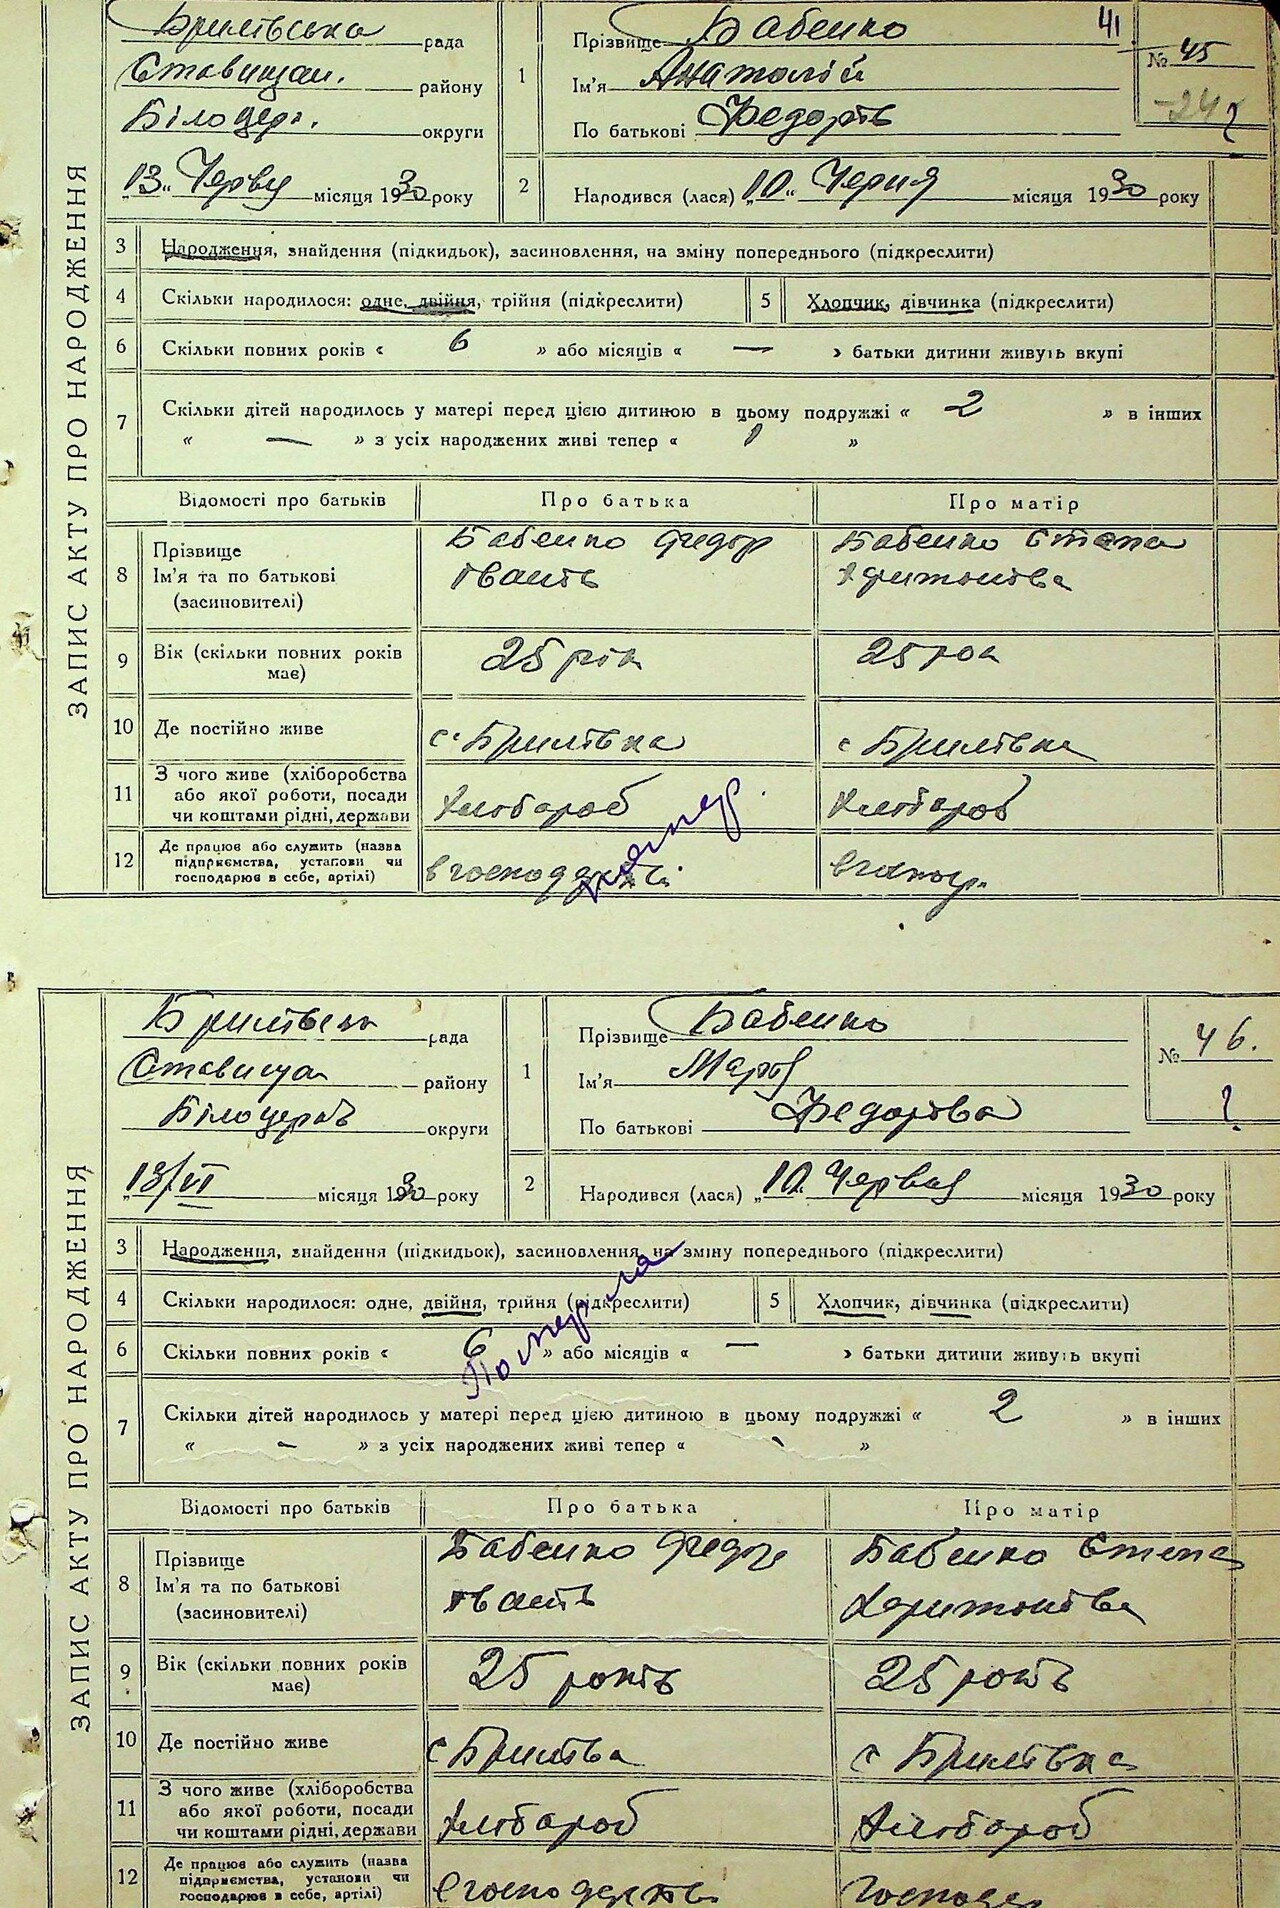 ЗАПИС АКТУ ПРО НАРОДЖЕННЯ
41
рада
Ставищан. району
Білоцер. округи
"13" Черв місяця 1930 року
1
Прізвище Бабенко
Ім'я Анатолій
По батькові Федорів
№ 45
24
?
2
Народився (лася) "10" Черня місяця 1930 року
3 Народження, знайдення (підкидьок), засиновлення, на зміну попереднього (підкреслити)
4 Скільки народилося: одне, двійня, трійня (підкреслити)
5 Хлопчик, дівчинка (підкреслити)
6 Скільки повних років « 6 » або місяців « — » батьки дитини живуть вкупі
7 Скільки дітей народилось у матері перед цією дитиною в цьому подружжі « 2 » в інших
« — » з усіх народжених живі тепер « »
Відомості про батьків Про батька Про матір
8 Прізвище
Ім'я та по батькові
(засиновителі)
Бабенко Федор
Бабенко Степа
9 Вік (скільки повних років
має)
25 рік
25 рок
10 Де постійно живе
с. Брилівка
с Брилівка
11 З чого живе (хліборобства
або якої роботи, посади
чи коштами рідні, держави
Хлібороб
Хлібороб
12 Де працює або служить (назва
підприємства, установи чи
господарює в себе, артілі)
помер.
ЗАПИС АКТУ ПРО НАРОДЖЕННЯ
рада
району
округи
"13/VI місяця 1930 року
1
Прізвище Бабенко
Ім'я
По батькові Федорівва
№ 46.
?
2
Народився (лася) "10" Червня місяця 1930 року
3 Народження, знайдення (підкидьок), засиновлення, на зміну попереднього (підкреслити)
4 Скільки народилося: одне, двійня, трійня (підкреслити)
5 Хлопчик, дівчинка (підкреслити)
Померла
6 Скільки повних років « 6 » або місяців « — » батьки дитини живуть вкупі
7 Скільки дітей народилось у матері перед цією дитиною в цьому подружжі « 2 » в інших
« - » з усіх народжених живі тепер « »
Відомості про батьків Про батька Про матір
8 Прізвище
Ім'я та по батькові
(засиновителі)
Бабенко Федор
Бабенко Степа
Харитонівва
9 Вік (скільки повних років
має)
25 років
25 років
10 Де постійно живе
с
с Брилівка
11 З чого живе (хліборобства
або якої роботи, посади
чи коштами рідні, держави
Хлібороб
Хлібороб
12 Де працює або служить (назва
підприємства, установи чи
господарює в себе, артілі)